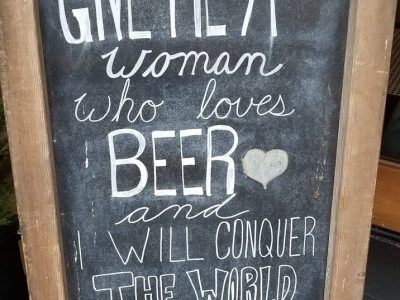 GIVE ME A
woman
who loves
BEER
and
I WILL CONQUER
THE WORLD